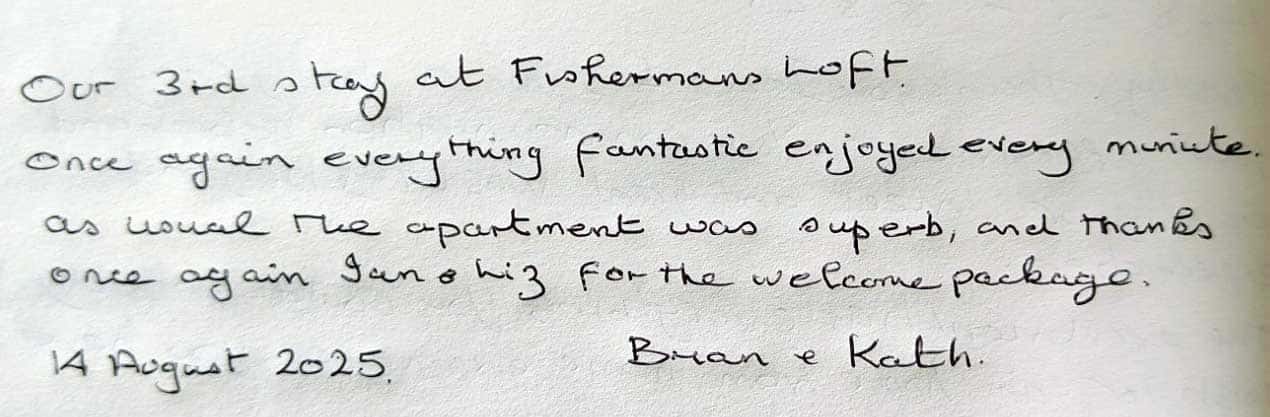 Our 3rd stay at Fishermans Loft.
Once again everything fantastic enjoyed every minute.
as usual the apartment was superb, and thanks
once again Ian & Liz for the welcome package.
14 August 2025.
Brian & Kath.